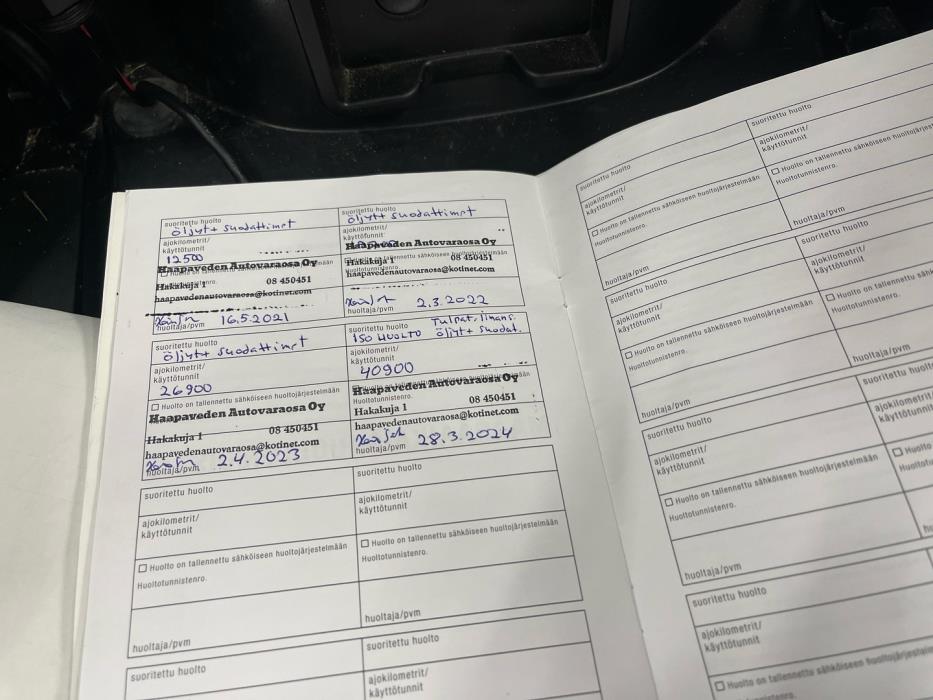 suoritettu huolto
öljyt + suodattimet
ajokilometrit/
käyttötunnit
12500
Haapaveden Autovaraosa Oy
Hakakuja 1
08 450451
haapavedenautovaraosa@kotinet.com
huoltaja/pvm
16.5.2021
suoritettu huolto
öljyt + suodattimet
ajokilometrit/
käyttötunnit
Haapaveden Autovaraosa Oy
Hakakuja 1
08 450451
haapavedenautovaraosa@kotinet.com
huoltaja/pvm
2.3.2022
suoritettu huolto
öljyt + suodattimet
ajokilometrit/
käyttötunnit
26900
Huolto on tallennettu sähköiseen huoltojärjestelmään
Haapaveden Autovaraosa Oy
Hakakuja 1
08 450451
haapavedenautovaraosa@kotinet.com
huoltaja/pvm
2.4.2023
suoritettu huolto
Tulpat, ilmans.
ISO HUOLTO öljyt + suodat.
ajokilometrit/
käyttötunnit
40900
Huoltotunnistenro.
Haapaveden Autovaraosa Oy
Hakakuja 1
08 450451
haapavedenautovaraosa@kotinet.com
huoltaja/pvm
28.3.2024
suoritettu huolto
ajokilometrit/
käyttötunnit
Huolto on tallennettu sähköiseen huoltojärjestelmään
Huoltotunnistenro.
huoltaja/pvm
suoritettu huolto
ajokilometrit/
käyttötunnit
Huolto on tallennettu sähköiseen huoltojärjestelmään
Huoltotunnistenro.
huoltaja/pvm
suoritettu huolto
suoritettu huolto
ajokilometrit/
käyttötunnit
suoritettu huolto
ajokilometrit/
käyttötunnit
Huolto on tallennettu sähköiseen huoltojärjestelmään
Huoltotunnistenro.
huoltaja/pvm
suoritettu huolto
ajokilometrit/
käyttötunnit
Huolto on tallennettu sähköiseen
Huoltotunnistenro.
huoltaja/pvm
suoritettu huolto
ajokilometrit/
käyttötunnit
Huolto on tallennettu sähköiseen huoltojärjestelmään
Huoltotunnistenro.
huoltaja/pvm
suoritettu huolto
ajokilometrit/
käyttötunnit
Huolto on tallennettu sähköiseen
Huoltotunnistenro.
huoltaja/pvm
suoritettu huolto
ajokilometrit/
käyttötunnit
Huolto on tallennettu sähköiseen huoltojärjestelmään
Huoltotunnistenro.
huoltaja/pvm
suoritettu
ajokilometrit/
käyttötunnit
Huolto
Huoltotunnistenro.
suoritettu huolto
ajokilometrit/
käyttötunnit
Huolto on tallennettu sähköiseen